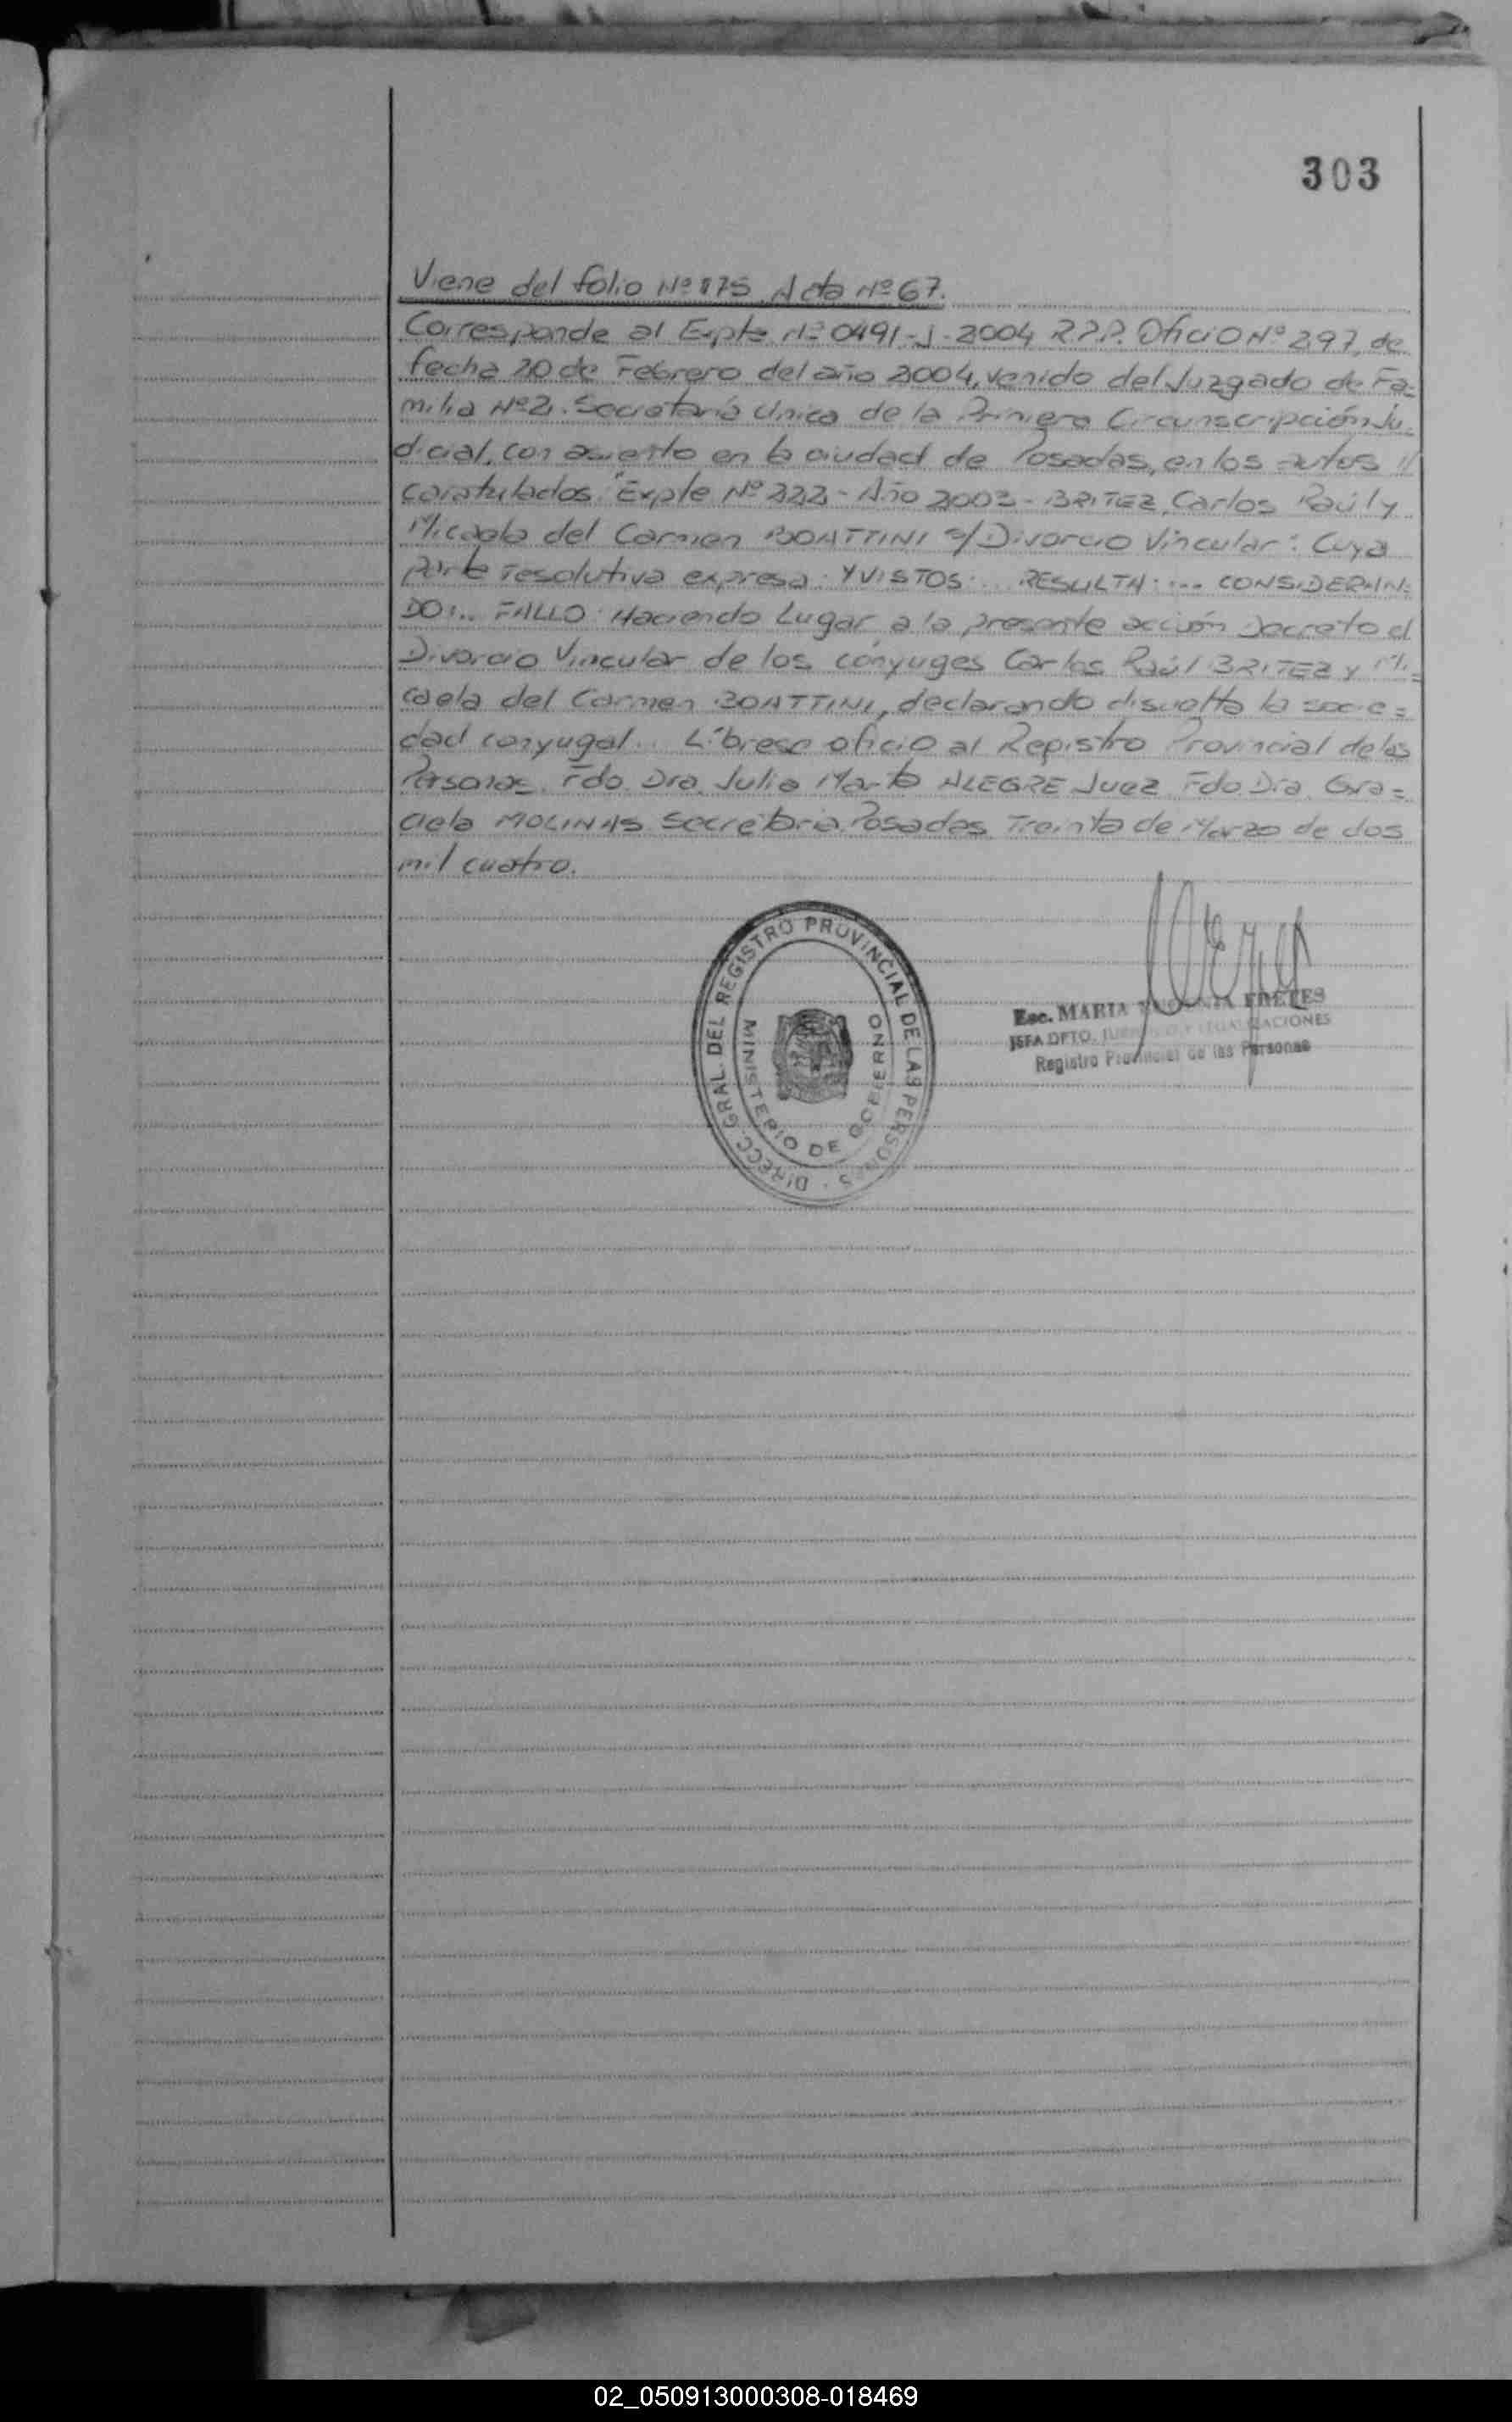 303
Viene del folio Nº 175 Acta Nº 67.
Corresponde al Expte. Nº 0491-J-2004 R.P.P. Oficio Nº 297, de
fecha 20 de Febrero del año 2004, venido del Juzgado de Fa-
milia Nº 2. Secretaría Unica de la Primera Circunscripción Ju-
dicial, con asiento en la ciudad de Posadas, en los autos //
caratulados: "Expte Nº 222 - Año 2003 - BRITEZ, Carlos Raúl y
Micaela del Carmen BOATTINI s/ Divorcio Vincular": Cuya
parte resolutiva expresa: Y VISTOS:... RESULTA:... CONSIDERAN=
DO:... FALLO: Haciendo Lugar a la presente acción Decreto el
Divorcio Vincular de los cónyuges Carlos Raúl BRITEZ y Mi=
caela del Carmen BOATTINI, declarando disuelta la socie=
dad conyugal... Líbrese oficio al Registro Provincial de las
Personas. Fdo. Dra. Julia Marta ALEGRE Juez Fdo. Dra. Gra=
ciela MOLINAS Secretaria. Posadas Treinta de Marzo de dos
mil cuatro.
DIRECC. GRAL. DEL REGISTRO PROVINCIAL DE LAS PERSONAS
MINISTERIO DE GOBIERNO
Esc. MARIA FRETES
JEFA DPTO. LEGALIZACIONES
Registro Provincial de las Personas
02_050913000308-018469